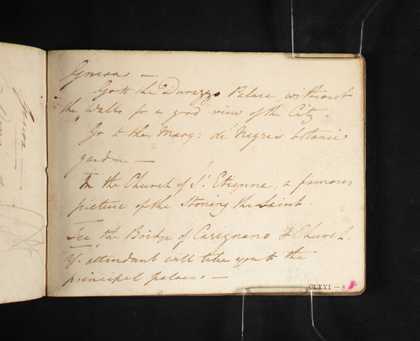 Genoa —
Go to the Durazzo Palace without
the Walls for a good view of the City.
Go to the Marq: de Negres botanic
garden —
In the Church of St. Etienne, a famous
picture of the Stoning the Saint.
See the Bridge of Carignano & Church.
Yr. attendant will take you to the
principal palaces —
CLXXI — 8